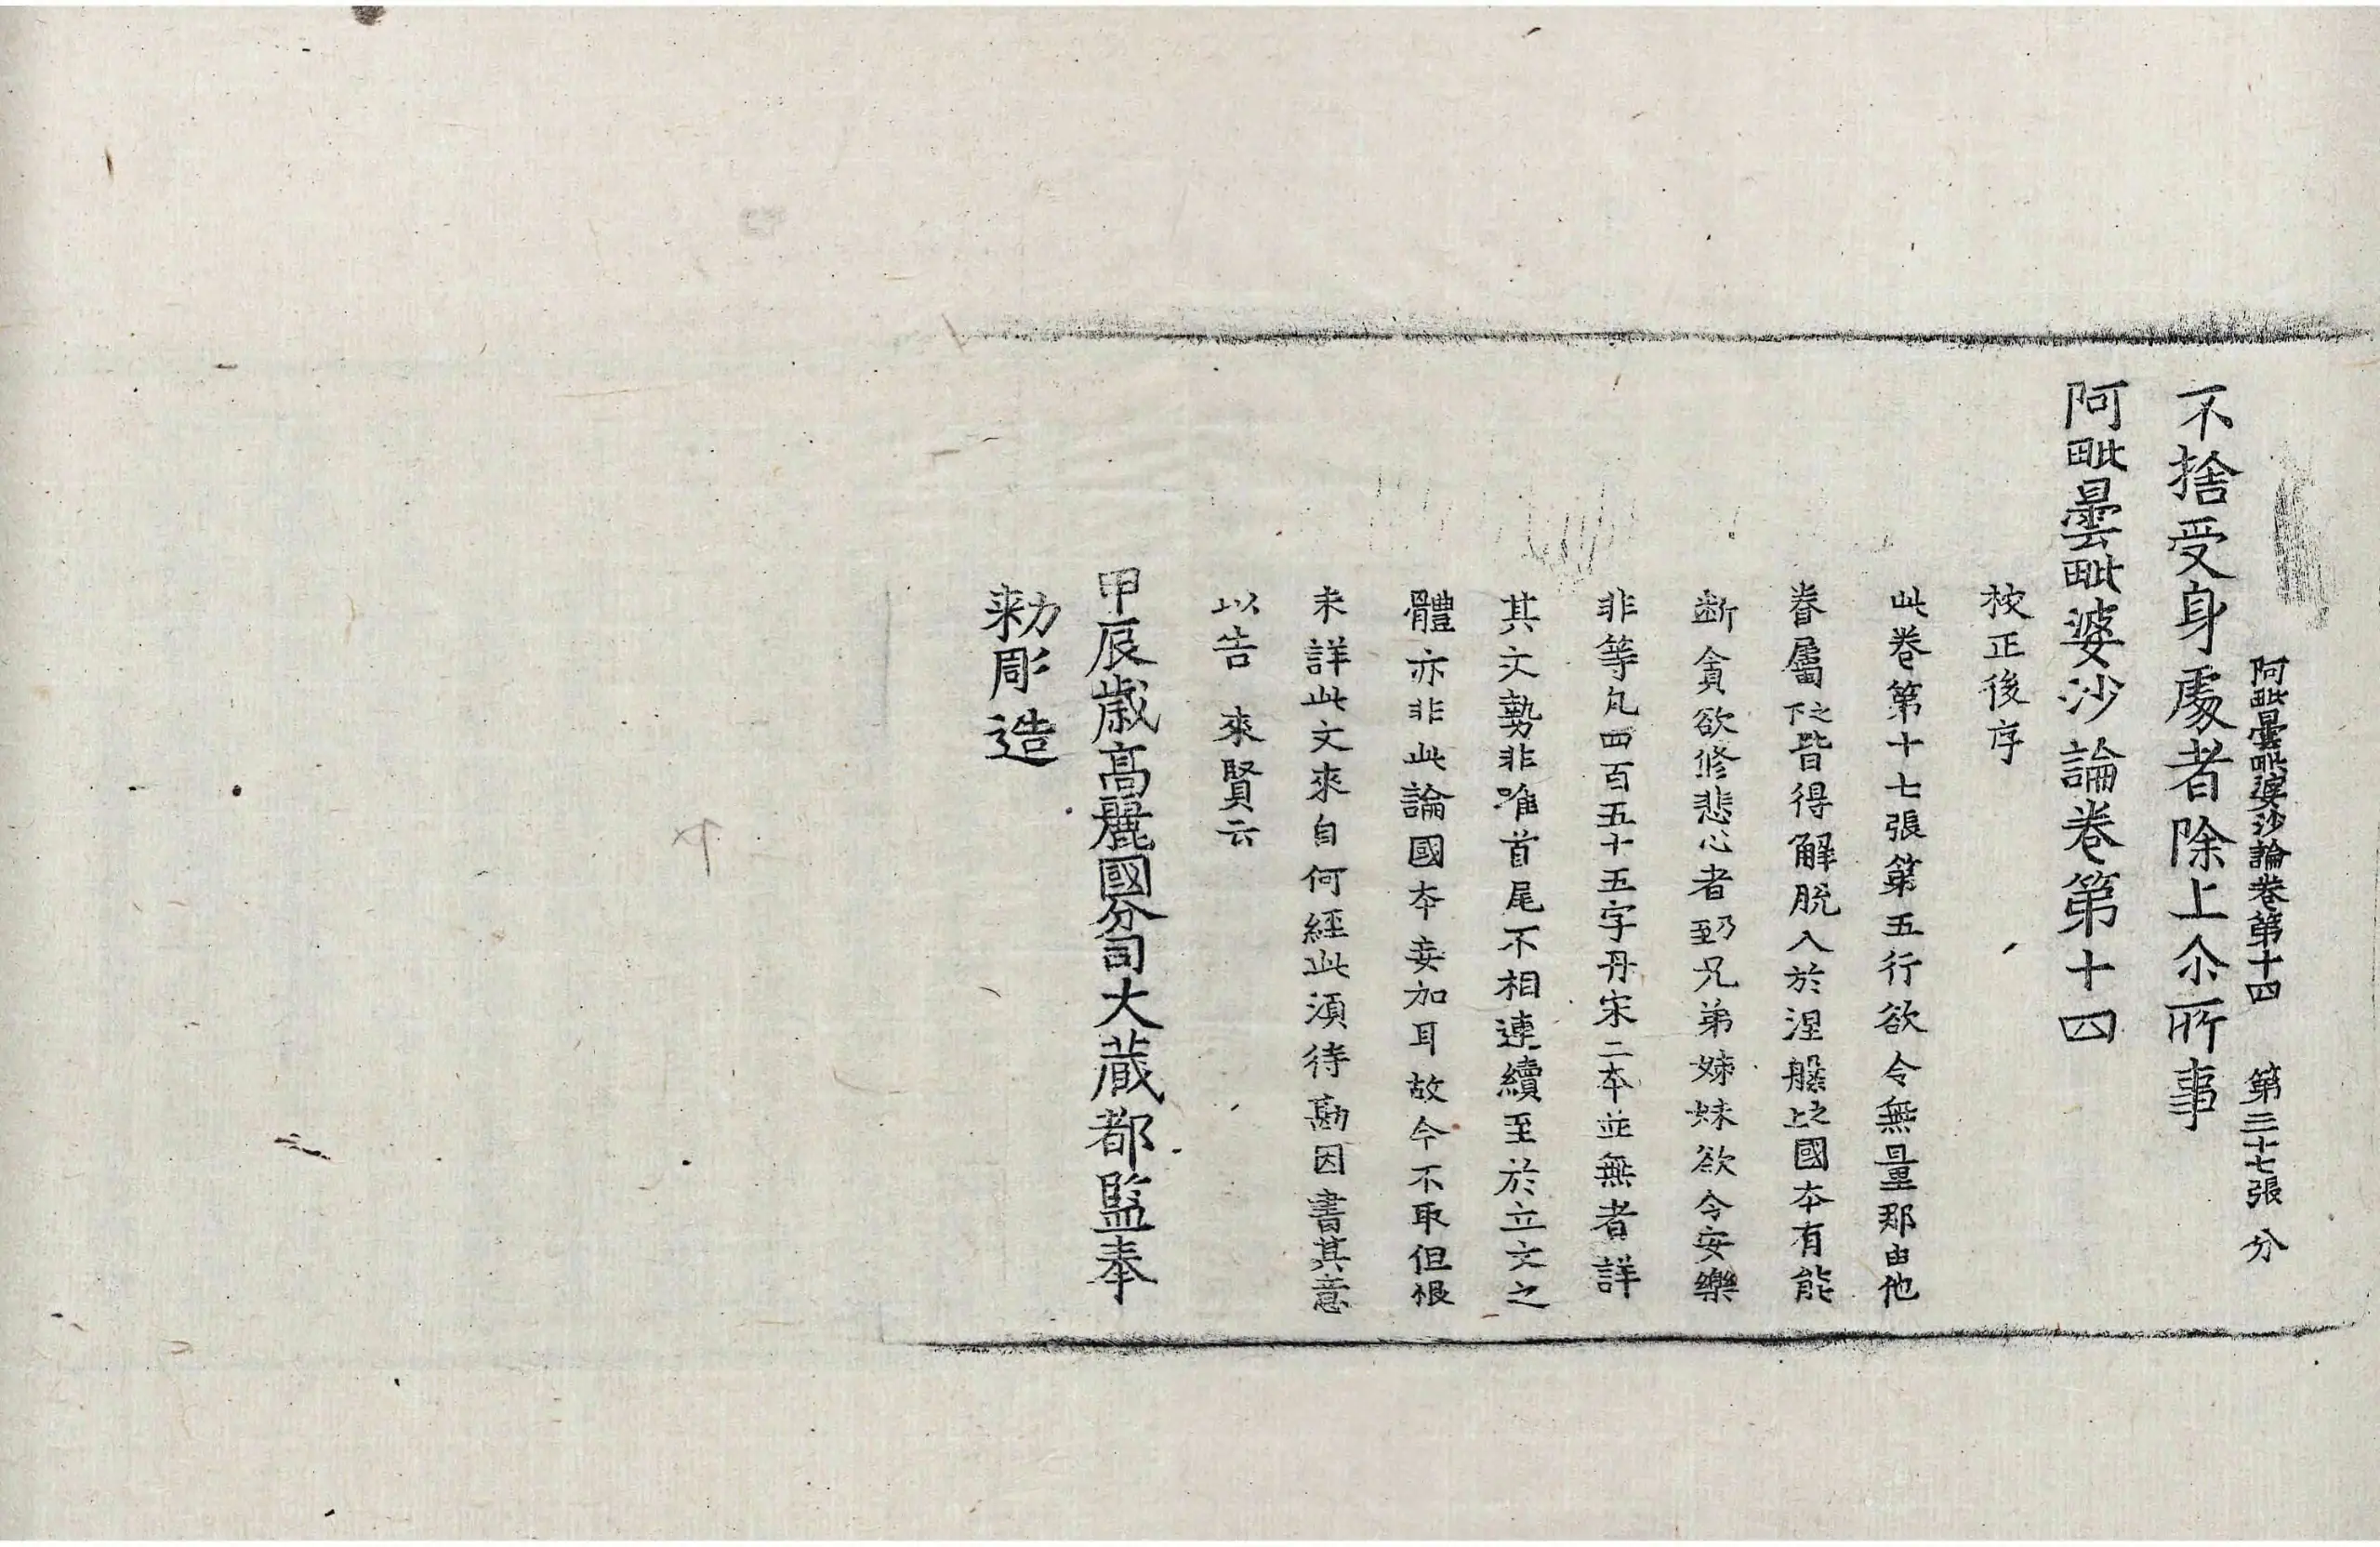 阿毗曇毗婆沙論卷第十四　第三十七張　分
不捨受身處者除上尒所事
阿毗曇毗婆沙論卷第十四
挍正後序
此卷第十七張第五行欲令無量那由他
眷屬之下皆得解脫入於涅槃之上國本有能
斷貪欲修悲心者乃至兄弟姊妹欲令安樂
非等凡四百五十五字丹宋二本並無者詳
其文勢非唯首尾不相連續至於立文之
體亦非此論國本妄加耳故今不取但恨
未詳此文來自何經此須待勘因書其意
以告　來賢云
甲辰歲高麗國分司大藏都監奉
勑彫造